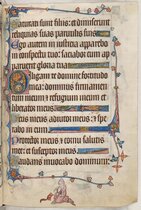 saturati sunt filiis: et dimiserunt
reliquias suas paruulis suis
Ego autem in iusticia apparebo
in conspectu tuo: saciabor cum ap
paruerit gloria tua
Diligam te domine fortitudo
mea: dominus firmamen
tum meum et refugium meum et
liberator meus
Deus meus adiutor meus: et spe
rabo in eum
Protector meus et cornu salutis
mee: et susceptor meus
Laudans inuocabo dominum: